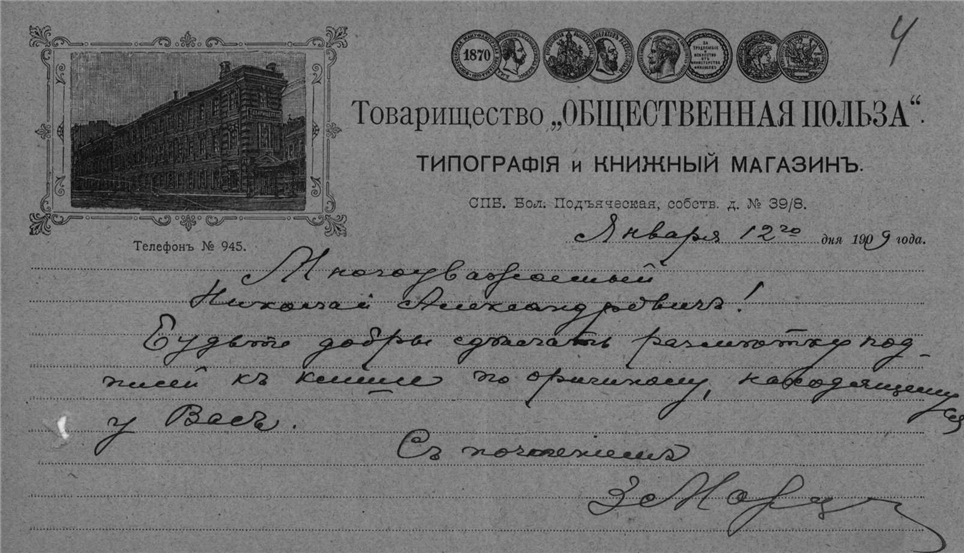 4
1870
Товарищество „ОБЩЕСТВЕННАЯ ПОЛЬЗА“.
ТИПОГРАФІЯ и КНИЖНЫЙ МАГАЗИНЪ.
СПБ. Бол. Подъяческая, собств. д. № 39/8.
Телефонъ № 945.
Января 12го дня 1909 года.
Многоуважаемый
Николай Александровичъ!
Будьте добры сдѣлать разметку под-
писей къ клише по оригиналу, находящемуся
у Васъ.
Съ почтеніемъ